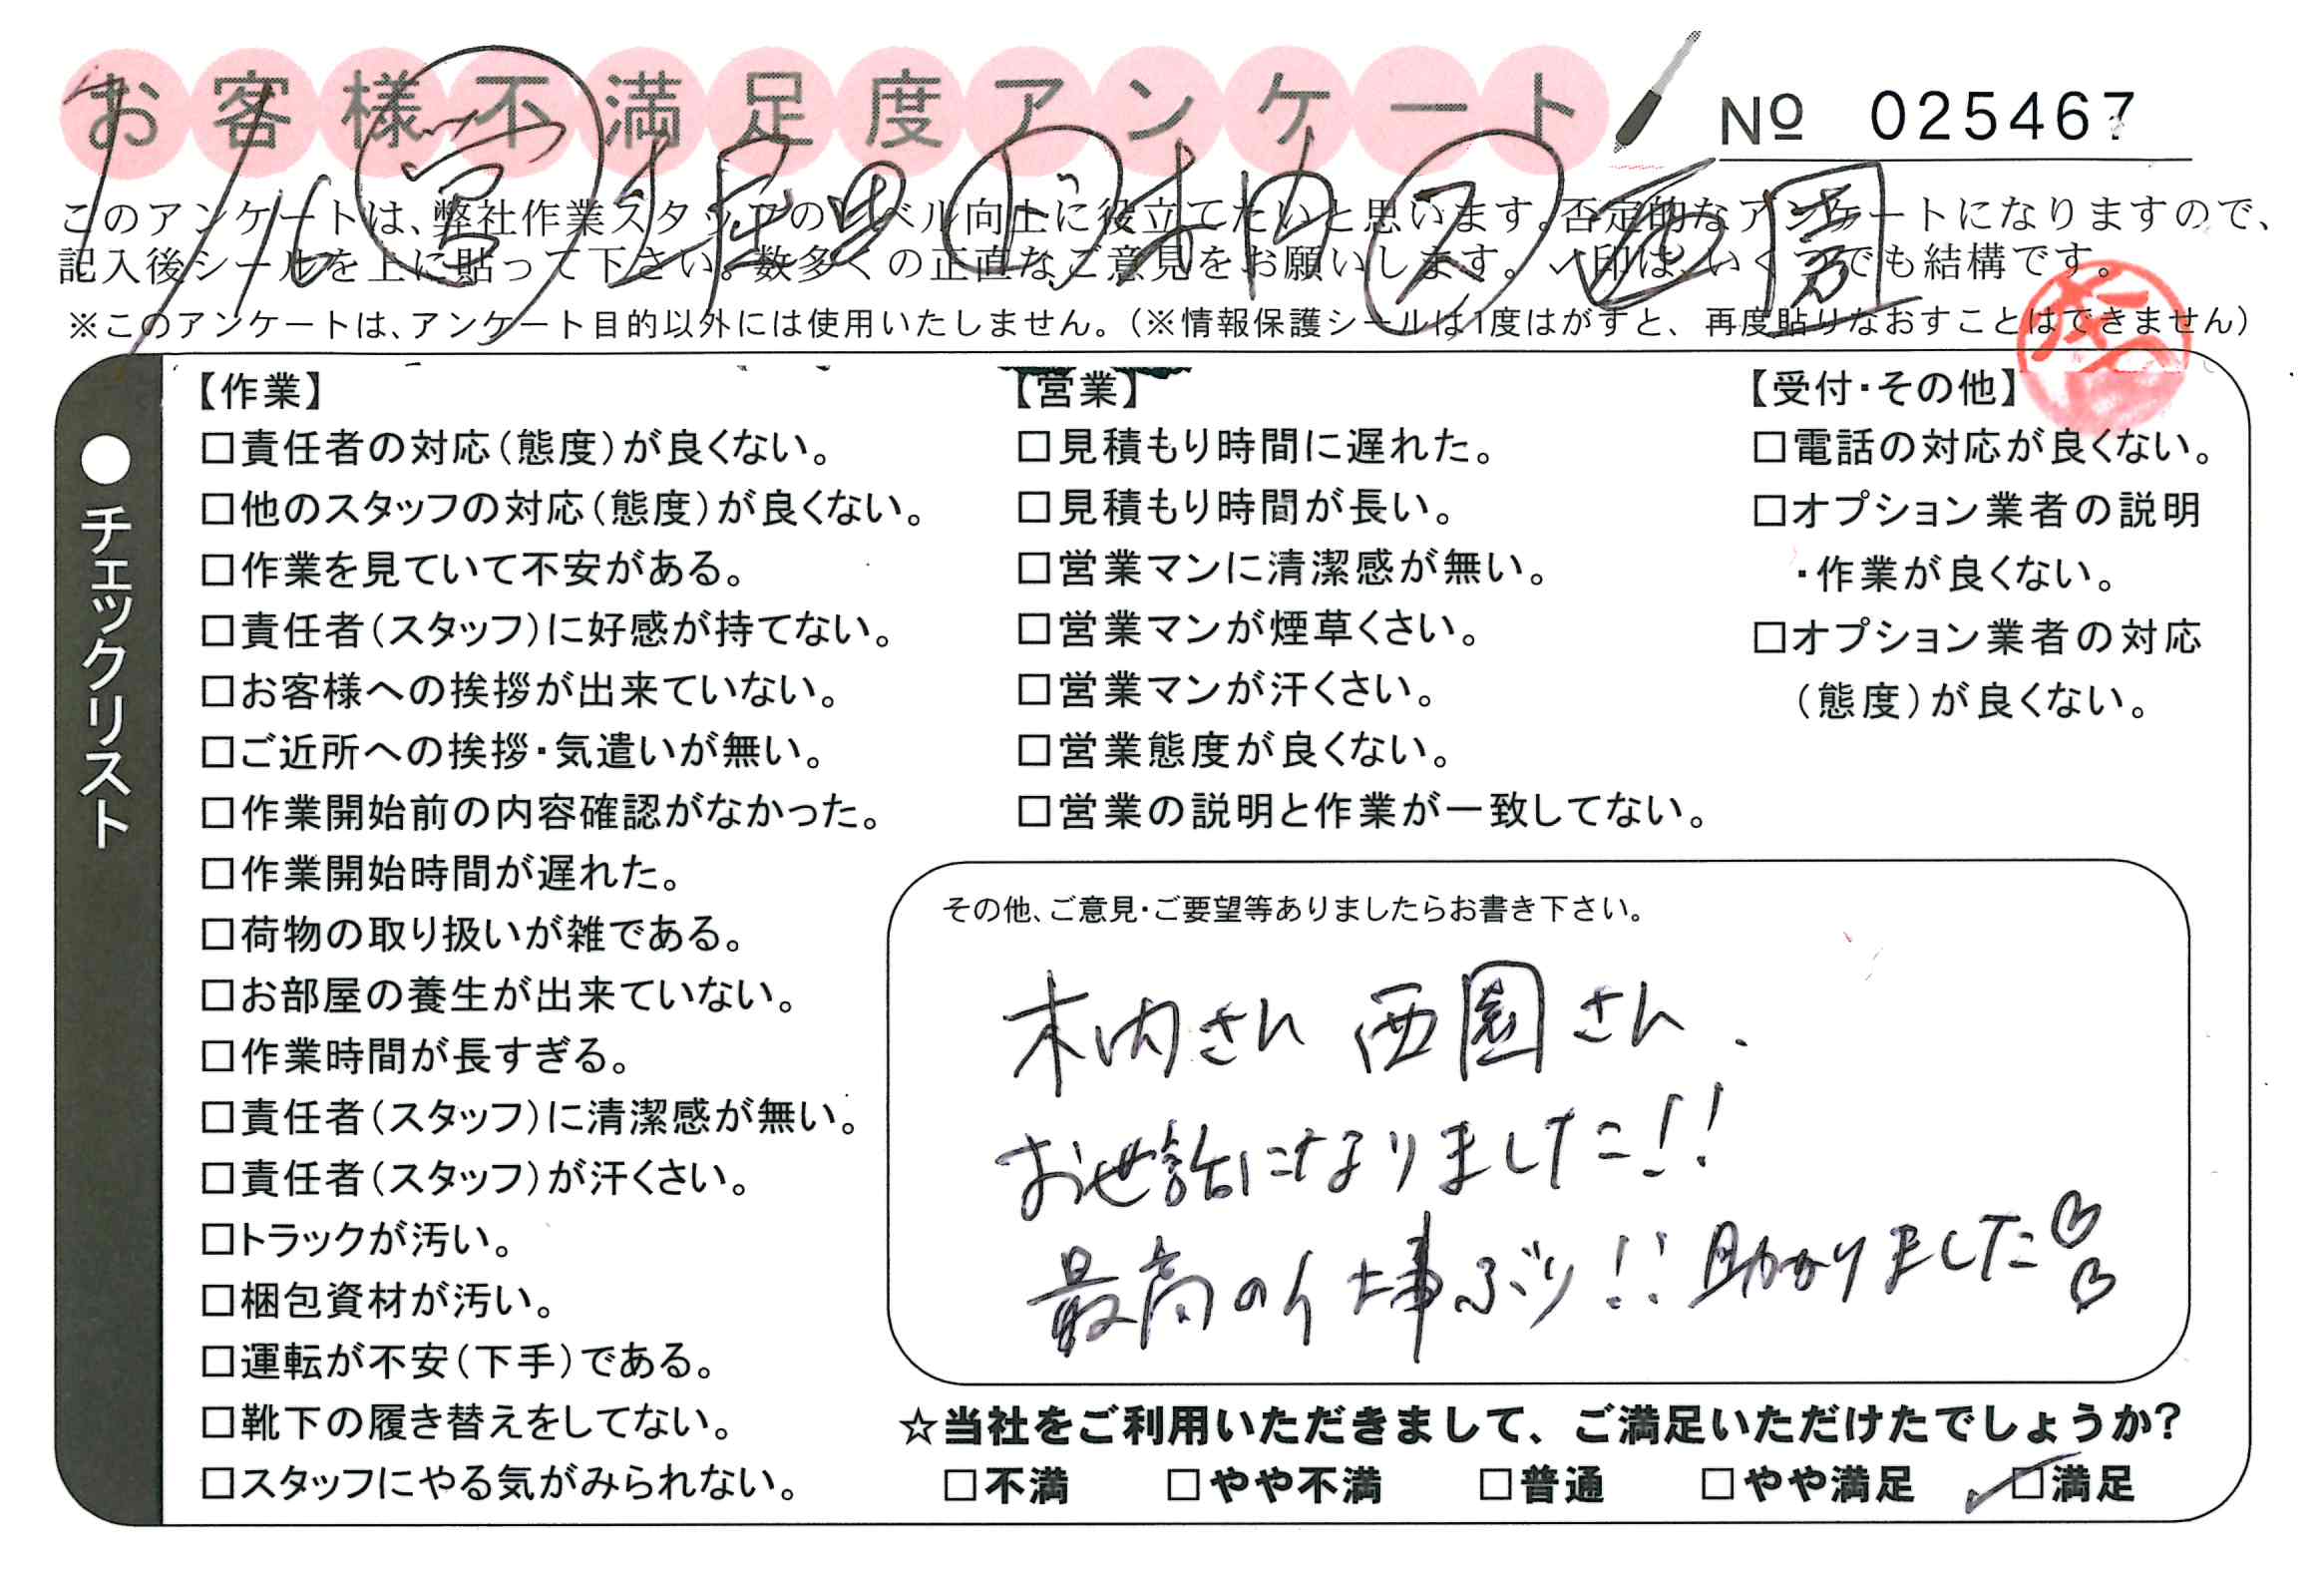 お客様不満足度アンケート
Nº 025467
11/16 営 リ 木内 ス 西園
このアンケートは、弊社作業スタッフのレベル向上に役立てたいと思います。否定的なアンケートになりますので、
記入後シールを上に貼って下さい。数多くの正直なご意見をお願いします。✓印は、いくつでも結構です。
※このアンケートは、アンケート目的以外には使用いたしません。(※情報保護シールは1度はがすと、再度貼りなおすことはできません)
●チェックリスト
【作業】
□責任者の対応(態度)が良くない。
□他のスタッフの対応(態度)が良くない。
□作業を見ていて不安がある。
□責任者(スタッフ)に好感が持てない。
□お客様への挨拶が出来ていない。
□ご近所への挨拶・気遣いが無い。
□作業開始前の内容確認がなかった。
□作業開始時間が遅れた。
□荷物の取り扱いが雑である。
□お部屋の養生が出来ていない。
□作業時間が長すぎる。
□責任者(スタッフ)に清潔感が無い。
□責任者(スタッフ)が汗くさい。
□トラックが汚い。
□梱包資材が汚い。
□運転が不安(下手)である。
□靴下の履き替えをしてない。
□スタッフにやる気がみられない。
【営業】
□見積もり時間に遅れた。
□見積もり時間が長い。
□営業マンに清潔感が無い。
□営業マンが煙草くさい。
□営業マンが汗くさい。
□営業態度が良くない。
□営業の説明と作業が一致してない。
【受付・その他】
□電話の対応が良くない。
□オプション業者の説明
・作業が良くない。
□オプション業者の対応
(態度)が良くない。
その他、ご意見・ご要望等ありましたらお書き下さい。
木内さん 西園さん、
お世話になりました!!
最高の仕事ぶり!! 助かりました♡♡
☆当社をご利用いただきまして、ご満足いただけたでしょうか?
□不満 □やや不満 □普通 □やや満足 ☑満足